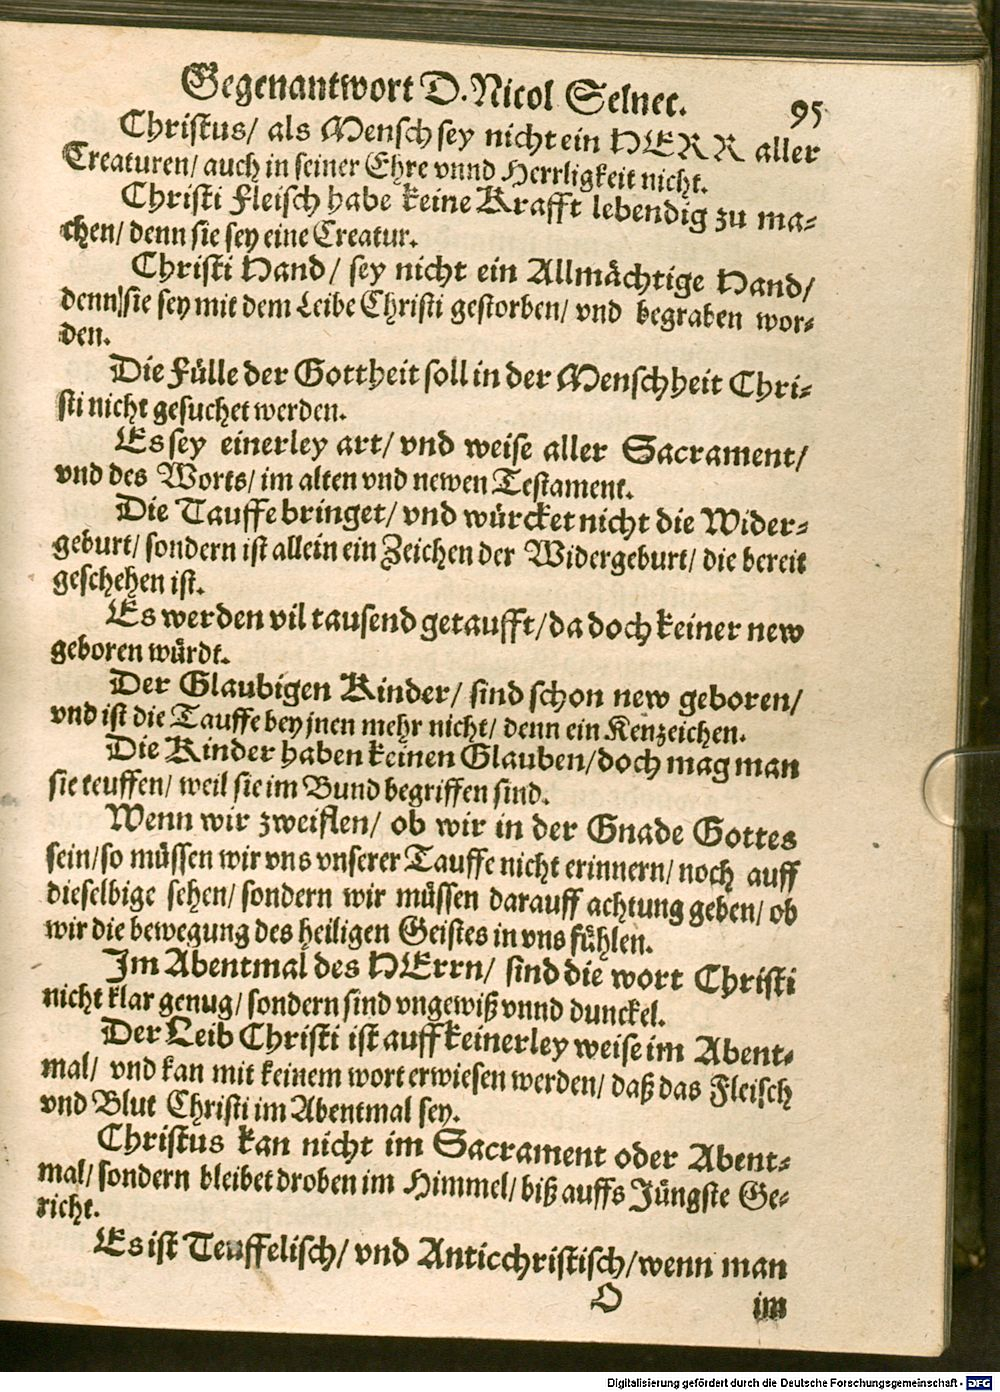 Gegenantwort D. Nicol Selnec. 95
Christus/ als Mensch sey nicht ein HERR aller
Creaturen/ auch in seiner Ehre vnnd Herrligkeit nicht.
Christi Fleisch habe keine Krafft lebendig zu ma-
chen/ denn sie sey eine Creatur.
Christi Hand/ sey nicht ein Allmächtige Hand/
denn sie sey mit dem Leibe Christi gestorben/ vnd begraben wor-
den.
Die Fülle der Gottheit soll in der Menschheit Chri-
sti nicht gesuchet werden.
Es sey einerley art/ vnd weise aller Sacrament/
vnd des Worts/ im alten vnd newen Testament.
Die Tauffe bringet/ vnd würcket nicht die Wider-
geburt/ sondern ist allein ein Zeichen der Widergeburt/ die bereit
geschehen ist.
Es werden vil tausend getaufft/ da doch keiner new
geboren würdt.
Der Glaubigen Kinder/ sind schon new geboren/
vnd ist die Tauffe bey jnen mehr nicht/ denn ein Kenzeichen.
Die Kinder haben keinen Glauben/ doch mag man
sie teuffen/ weil sie im Bund begriffen sind.
Wenn wir zweiflen/ ob wir in der Gnade Gottes
sein/ so müssen wir vns vnserer Tauffe nicht erinnern/ noch auff
dieselbige sehen/ sondern wir müssen darauff achtung geben/ ob
wir die bewegung des heiligen Geistes in vns fühlen.
Im Abentmal des HErrn/ sind die wort Christi
nicht klar genug/ sondern sind vngewiß vnnd dunckel.
Der Leib Christi ist auff keinerley weise im Abent-
mal/ vnd kan mit keinem wort erwiesen werden/ daß das Fleisch
vnd Blut Christi im Abentmal sey.
Christus kan nicht im Sacrament oder Abent-
mal/ sondern bleibet droben im Himmel/ biß auffs Jüngste Ge-
richt.
Es ist Teuffelisch/ vnd Anticchristisch/ wenn man
O im
Digitalisierung gefördert durch die Deutsche Forschungsgemeinschaft - DFG